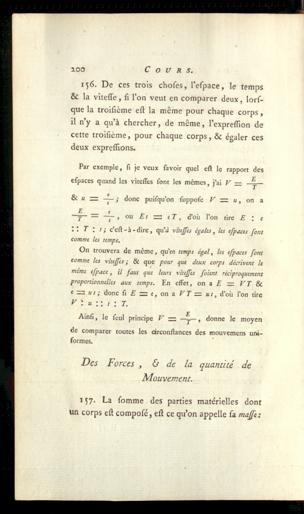 200 COURS.
156. De ces trois choses, l'espace, le temps
& la vitesse, si l'on veut en comparer deux, lors-
que la troisième est la même pour chaque corps,
il n'y a qu'à chercher, de même, l'expression de
cette troisième, pour chaque corps, & égaler ces
deux expressions.
Par exemple, si je veux savoir quel est le rapport des
espaces quand les vitesses sont les mêmes, j'ai V = E/T
& u = e/t ; donc puisqu'on suppose V = u, on a
E/T = e/t , ou Et = eT, d'où l'on tire E : e
:: T : t ; c'est-à-dire, qu'à vitesses égales, les espaces sont
comme les temps.
On trouvera de même, qu'en temps égal, les espaces sont
comme les vitesses ; & que pour que deux corps décrivent le
même espace, il faut que leurs vitesses soient réciproquement
proportionnelles aux temps. En effet, on a E = VT &
e = ut ; donc si E = e, on a VT = ut, d'où l'on tire
V : u :: t : T.
Ainsi, le seul principe V = E/T , donne le moyen
de comparer toutes les circonstances des mouvemens uni-
formes.
Des Forces, & de la quantité de
Mouvement.
157. La somme des parties matérielles dont
un corps est composé, est ce qu'on appelle sa masse :